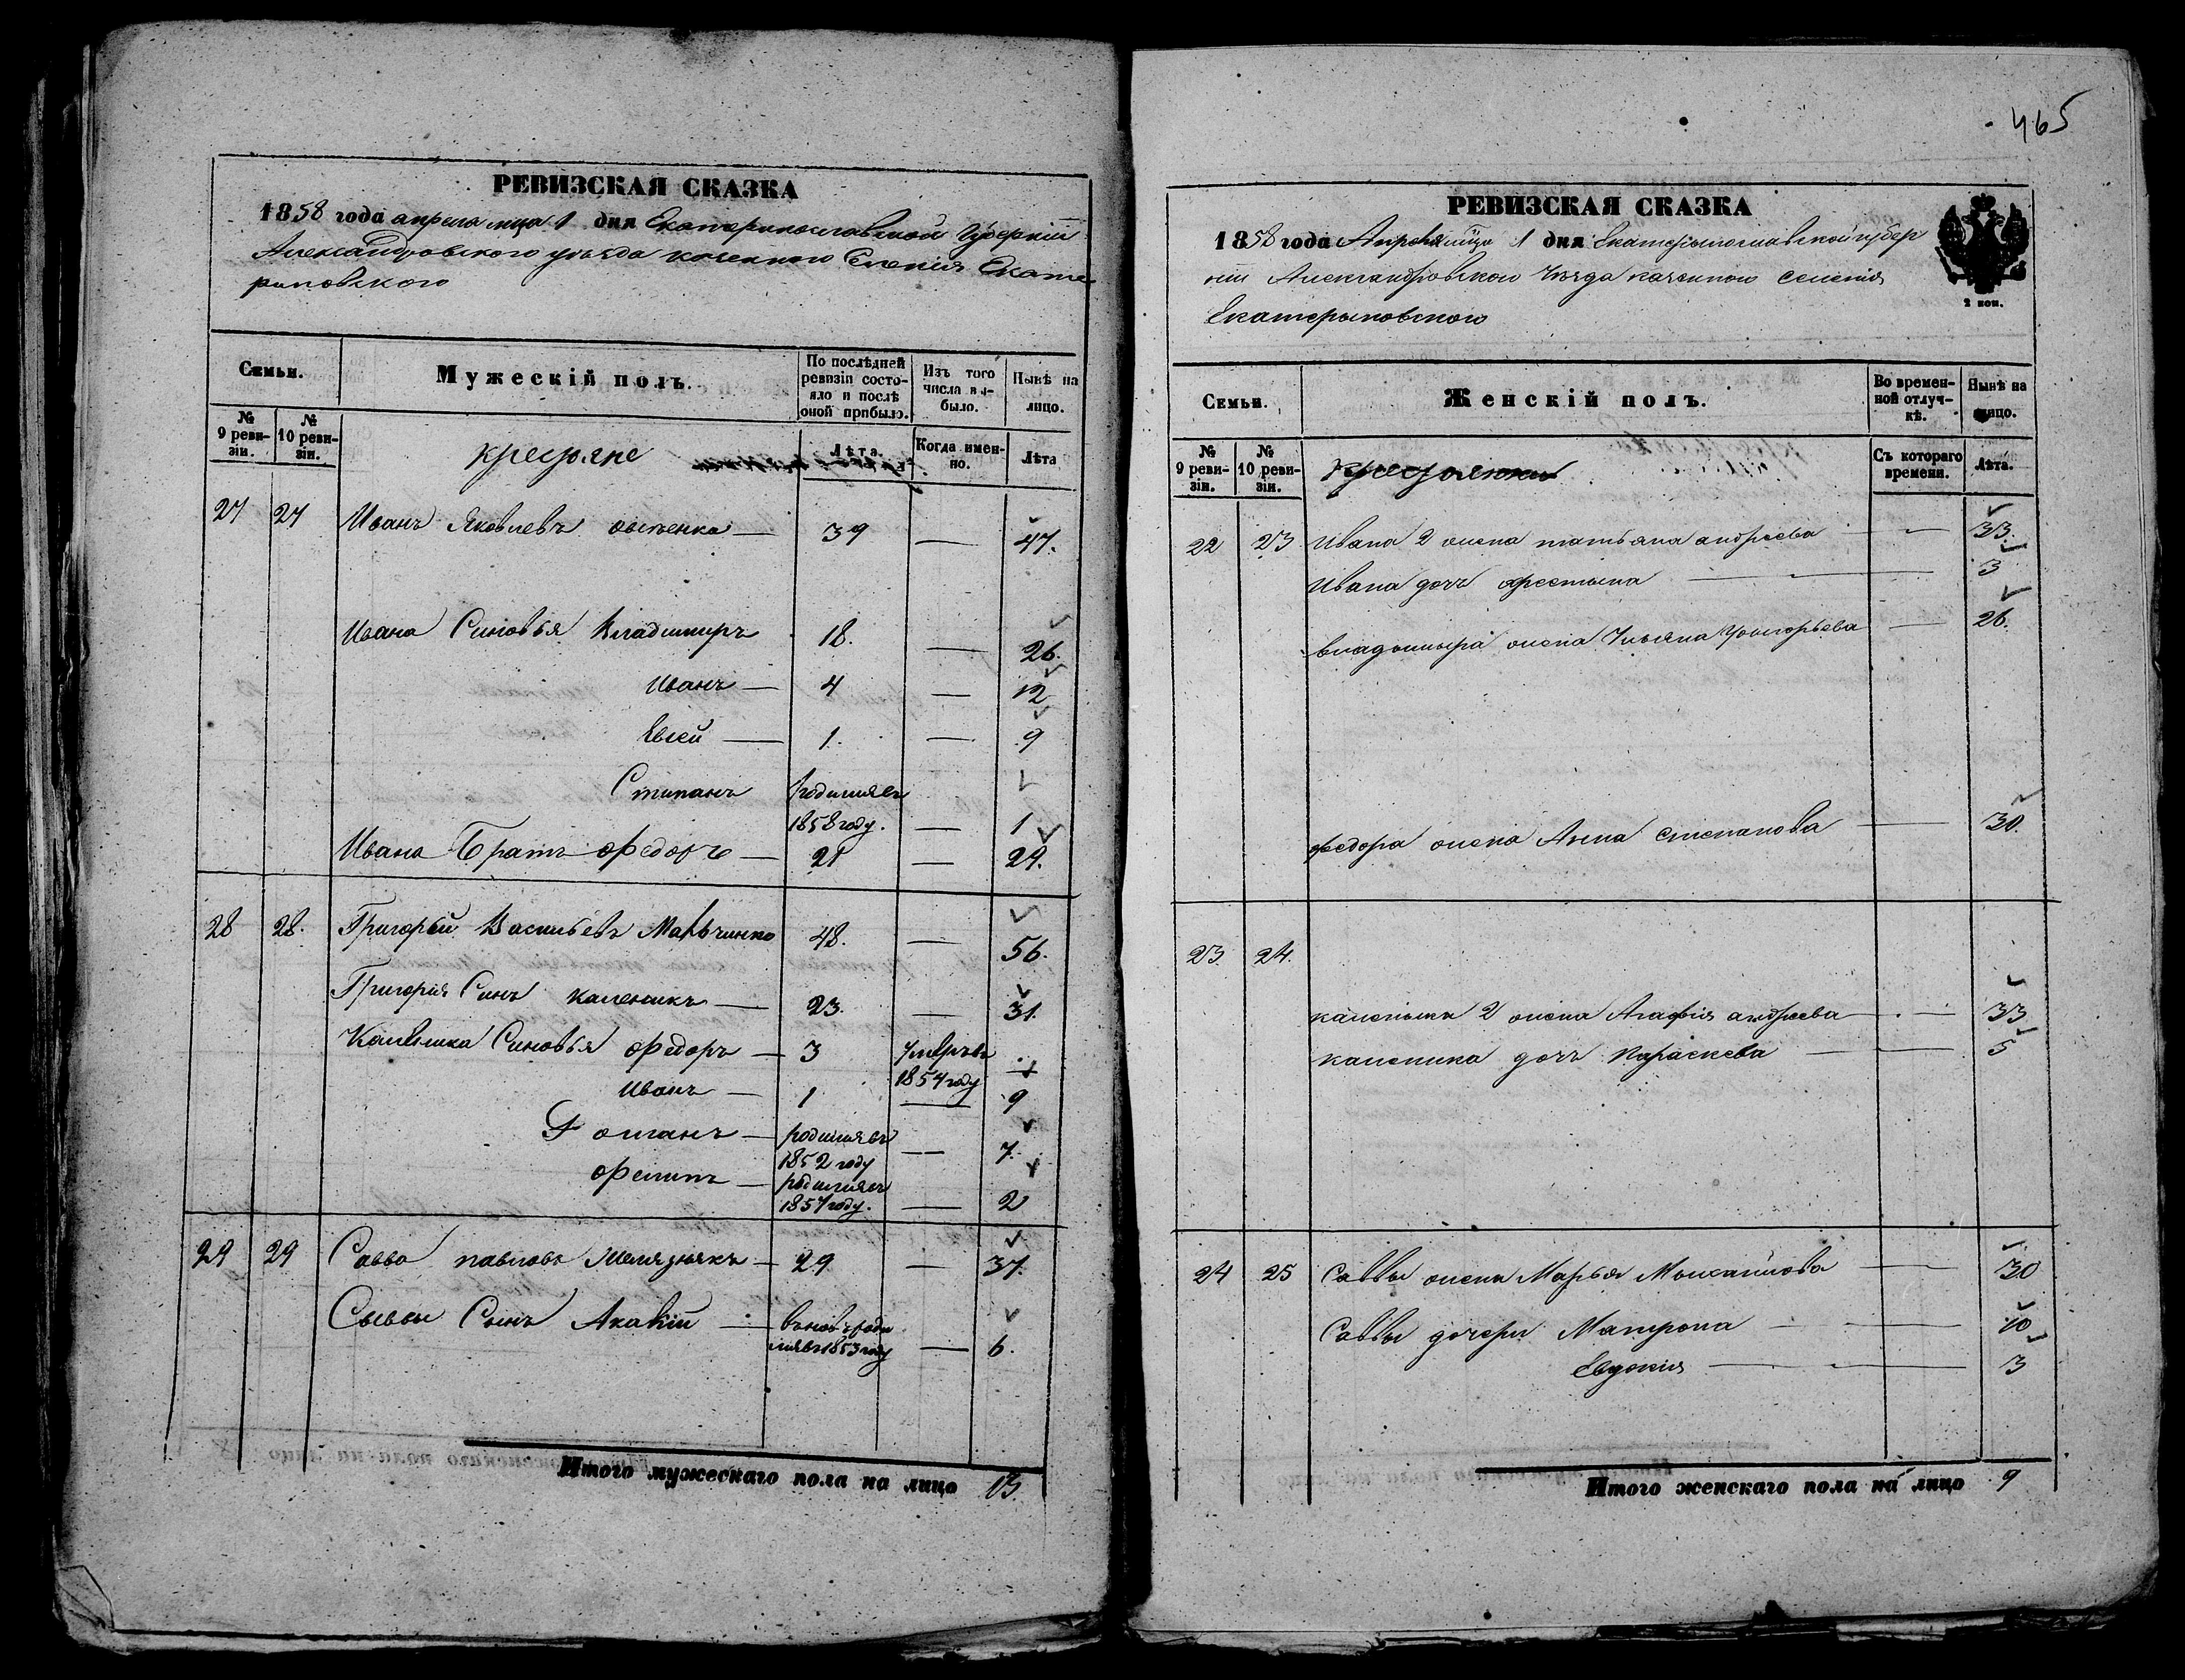 РЕВИЗСКАЯ СКАЗКА
1858 года апреля мца 1 дня Екатеринославской Губернии
Александровского уезда казенного Селенія Екате
риновского
Семьи.
Мужескій полъ.
По послѣдней ревизіи состояло и послѣ оной прибыло.
Изъ того числа выбыло.
Нынѣ на лицо.
№ 9 ревизіи.
№ 10 ревизіи.
крестяне
Лѣта.
Когда именно.
Лѣта
27 27 Иванъ Яковлевъ — 39 — 47.
Ивана Синовья Владимиръ 18. — 26.
Иванъ — 4 — 12
Евсей — 1. — 9
Стипанъ родился въ
1858 году. — 1
Ивана Братъ Федоръ — 21 — 29.
28 28. Григорий Васильевъ 48. — 56.
Григория Синъ Каленикъ — 23. — 31.
Каленика Синовья Федоръ — 3 Умеръ въ
1854 году
Иванъ — 1 — 9
Романъ — родился въ — 7.
1852 году
Филипъ — родился въ
1857 году. — 2
29 29 Савва павловъ — 29 — 37.
Саввы Синъ Акакій — вновь роди
лся въ 1853 году — 6.
Итого мужескаго пола на лицо 13.
465
РЕВИЗСКАЯ СКАЗКА
1858 года Апреля мца 1 дня Екатеринославской губер
ніи Александровскои Уезда казенною селенія
Екатерыновскою
2 коп.
Семьи.
Женскій полъ.
Во временной отлучкѣ.
Нынѣ на лицо.
№ 9 ревизіи.
№ 10 ревизіи.
крестянки
Съ котораго времени.
Лѣта.
22 23 Ивана 2 жена татьяна андреева — 33.
Ивана дочь христына — 3
владымыра жена Ульяна Григорьева — 26.
федора жена Анна степанова — 30.
23. 24.
каленика 2 жена Агафія андреева — 33
каленика дочь Параскева — 5
24 25 Саввы жена Марья Михайлова — 30
Саввы дочери Матрона — 10
Евдокія — 3
Итого женскаго пола на лицо 9